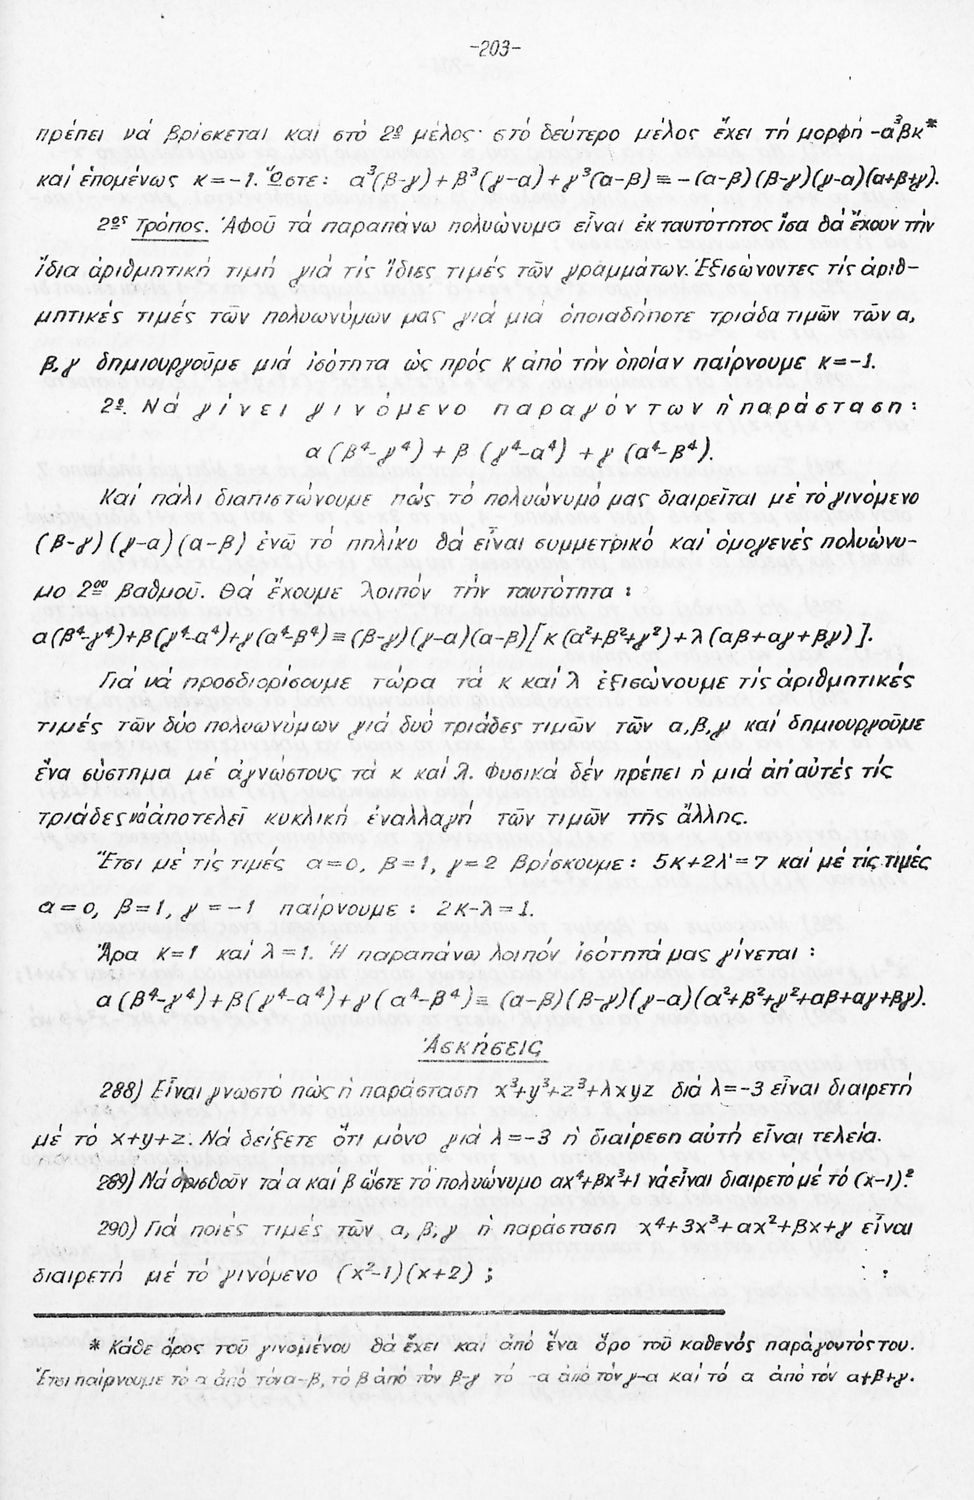 -203-
πρέπει νά βρίσκεται καί στό 2º μέλος· στό δεύτερο μέλος ἔχει τή μορφή -α³βκ*
καί ἑπομένως κ=-1. Ὥστε: α³(β-γ)+β³(γ-α)+γ³(α-β)≡-(α-β)(β-γ)(γ-α)(α+β+γ).
2ος Τρόπος. Ἀφοῦ τά παραπάνω πολυώνυμα εἶναι ἐκ ταυτότητος ἴσα θά ἔχουν τήν
ἴδια ἀριθμητική τιμή γιά τίς ἴδιες τιμές τῶν γραμμάτων. Ἐξισώνοντες τίς ἀριθ-
μητικές τιμές τῶν πολυωνύμων μας γιά μιά ὁποιαδήποτε τριάδα τιμῶν τῶν α,
β,γ δημιουργοῦμε μιά ἰσότητα ὡς πρός κ ἀπό τήν ὁποίαν παίρνουμε κ=-1.
2º. Νά γίνει γινόμενο παραγόντων ἡ παράσταση:
α(β⁴-γ⁴)+β(γ⁴-α⁴)+γ(α⁴-β⁴).
Καί πάλι διαπιστώνουμε πώς τό πολυώνυμό μας διαιρεῖται μέ τό γινόμενο
(β-γ)(γ-α)(α-β) ἐνῶ τό πηλίκο θά εἶναι συμμετρικό καί ὁμογενές πολυώνυ-
μο 2ου βαθμοῦ. Θά ἔχουμε λοιπόν τήν ταυτότητα:
α(β⁴-γ⁴)+β(γ⁴-α⁴)+γ(α⁴-β⁴)≡(β-γ)(γ-α)(α-β)[κ(α²+β²+γ²)+λ(αβ+αγ+βγ)].
Γιά νά προσδιορίσουμε τώρα τά κ καί λ ἐξισώνουμε τίς ἀριθμητικές
τιμές τῶν δύο πολυωνύμων γιά δυό τριάδες τιμῶν τῶν α,β,γ καί δημιουργοῦμε
ἕνα σύστημα μέ ἀγνώστους τά κ καί λ. Φυσικά δέν πρέπει ἡ μιά ἀπ' αὐτές τίς
τριάδες νά ἀποτελεῖ κυκλική ἐναλλαγή τῶν τιμῶν τῆς ἄλλης.
Ἔτσι μέ τίς τιμές α=0, β=1, γ=2 βρίσκουμε: 5κ+2λ=7 καί μέ τίς τιμές
α=0, β=1, γ=-1 παίρνουμε: 2κ-λ=1.
Ἄρα κ=1 καί λ=1. Ἡ παραπάνω λοιπόν ἰσότητά μας γίνεται:
α(β⁴-γ⁴)+β(γ⁴-α⁴)+γ(α⁴-β⁴)≡(α-β)(β-γ)(γ-α)(α²+β²+γ²+αβ+αγ+βγ).
Ἀσκήσεις
288) Εἶναι γνωστό πώς ἡ παράσταση x³+y³+z³+λxyz διά λ=-3 εἶναι διαιρετή
μέ τό x+y+z. Νά δείξετε ὅτι μόνο γιά λ=-3 ἡ διαίρεση αὐτή εἶναι τελεία.
289) Νά ὁρισθοῦν τά α καί β ὥστε τό πολυώνυμο αx⁴+βx³+1 νά εἶναι διαιρετό μέ τό (x-1)².
290) Γιά ποιές τιμές τῶν α,β,γ ἡ παράσταση x⁴+3x³+αx²+βx+γ εἶναι
διαιρετή μέ τό γινόμενο (x²-1)(x+2);
* Κάθε ὅρος τοῦ γινομένου θά ἔχει καί ἀπό ἕνα ὅρο τοῦ καθενός παράγοντός του.
Ἔτσι παίρνουμε τό α ἀπό τόν α-β, τό β ἀπό τόν β-γ τό -α ἀπό τόν γ-α καί τό α ἀπό τόν α+β+γ.